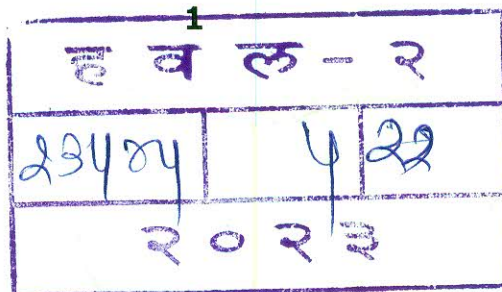 1
ह व ल - २
२३५४५ ५ २२
२ ० २ ३